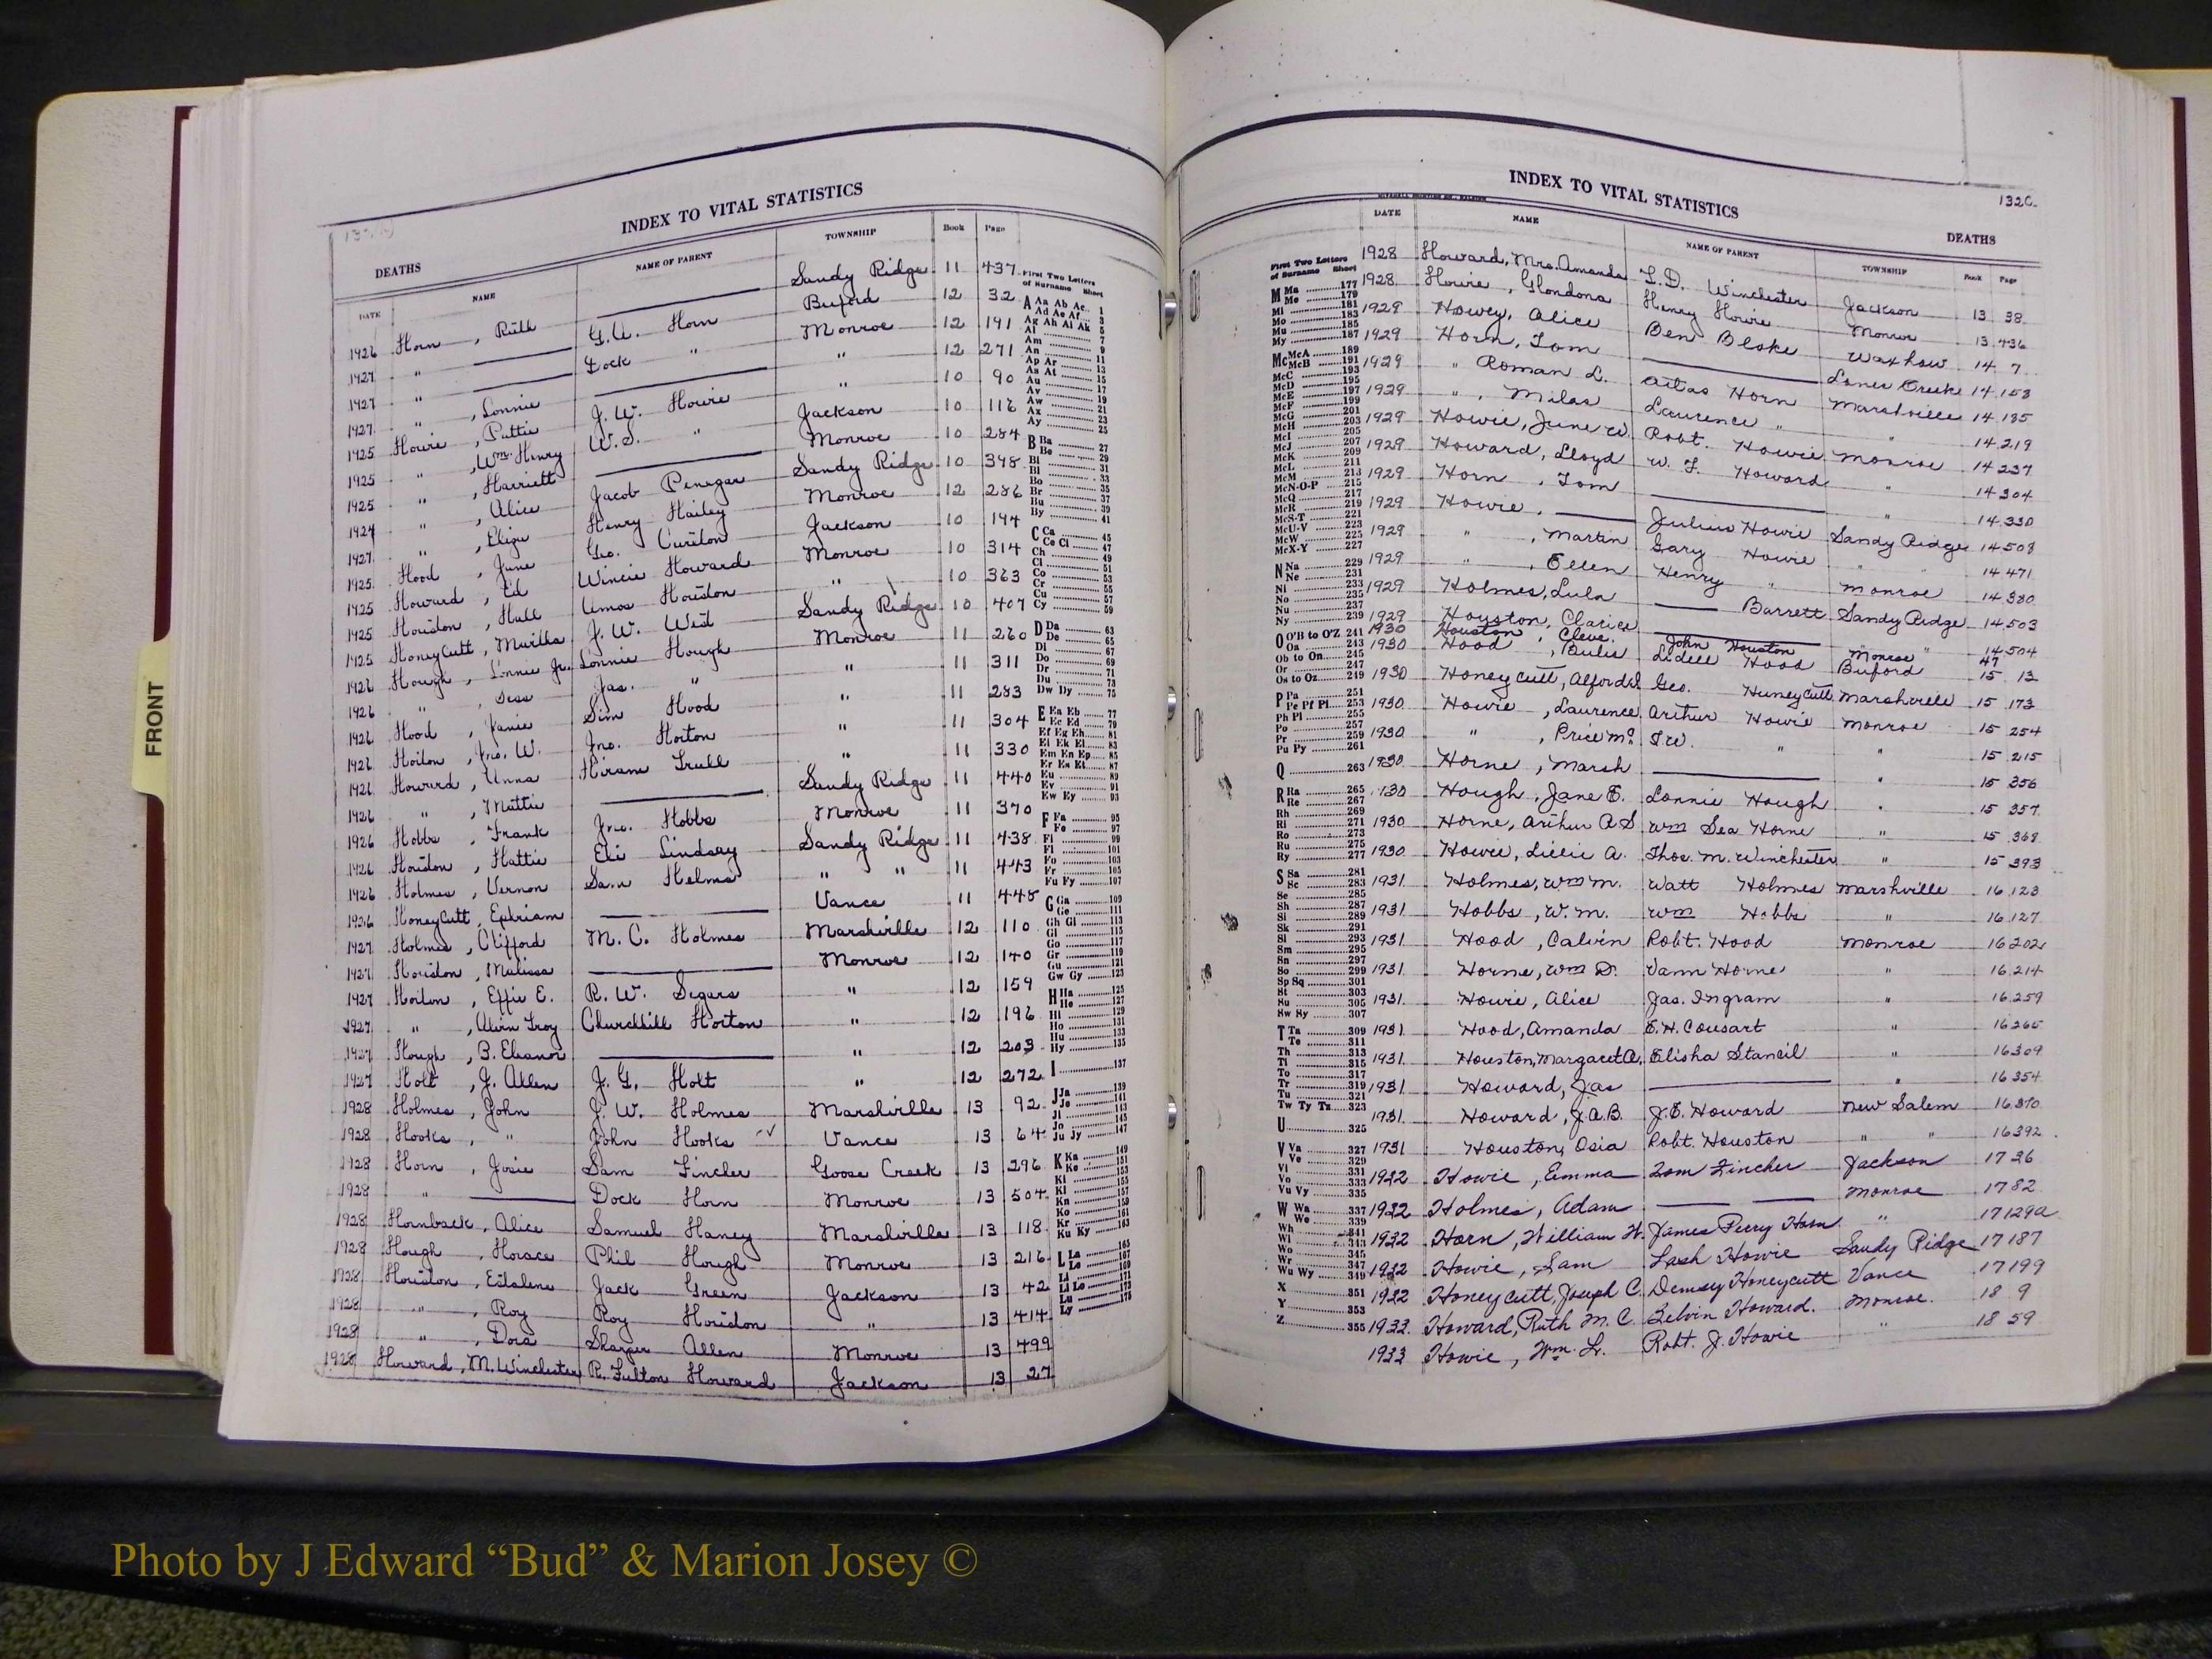 INDEX TO VITAL STATISTICS
DEATHS
DATE NAME NAME OF PARENT TOWNSHIP Book Page
1926 Horn, Ruth —— Sandy Ridge 11 437
1927 " —— G.A. Horn Buford 12 32
1927 " —— Dock " Monroe 12 191
1927 " , Lonnie —— " 12 271
1925 Howie, Pattie J.W. Howie " 10 90
1925 " , Wm. Henry W.S. " Jackson 10 116
1925 " , Harriett —— Monroe 10 284
1924 " , Alice Jacob Penegar Sandy Ridge 10 348
1927 " , Eliza Henry Hailey Monroe 12 286
1925 Hood, June Geo. Cureton Jackson 10 194
1925 Howard, Ed Wincie Howard Monroe 10 314
1925 Houston, Hull Amos Houston " 10 363
1925 HoneyCutt, Martha J.W. Sandy Ridge 10 407
1926 Hough, Lonnie Jr. Lonnie Hough Monroe 11 260
1926 " , Jess Jas. " " 11 311
1926 Hood, Janie Sim Hood " 11 283
1926 Horton, Jno. W. Jno. Horton " 11 304
1926 Howard, Anna Hiram Trull " 11 330
1926 " , Mattie —— Sandy Ridge 11 440
1926 Hobbs, Frank Jno. Hobbs Monroe 11 370
1926 Houston, Hattie Eli Lindsay Sandy Ridge 11 438
1926 Holmes, Vernon Sam Helms " " 11 443
1926 HoneyCutt, Ephriam —— Vance 11 448
1927 Holmes, Clifford M.C. Holmes Marshville 12 110
1927 Houston, Malissa —— Monroe 12 140
1927 Horton, Effie E. R.W. Segars " 12 159
1927 " , Alvin Troy Churchhill Horton " 12 196
1927 Hough, B. Eleanor —— " 12 203
1927 Holt, J. Allen J.G. Holt " 12 272
1928 Holmes, John J.W. Holmes Marshville 13 92
1928 Hooks, " John Hooks Vance 13 64
1928 Horn, Josie Sam Fincher Goose Creek 13 296
1928 " —— Dock Horn Monroe 13 504
1928 Hornback, Alice Samuel Haney Marshville 13 118
1928 Hough, Horace Phil Hough Monroe 13 216
1928 Houston, Jack Green Jackson 13 42
1928 " , Roy Roy Houston " 13 414
1928 " , Dora Allen Monroe 13 499
1928 Howard, M. Winchester R. Fulton Howard Jackson 13 27
First Two Letters
of Surname Sheet
A Aa Ab Ac 1
Ad Ae Af 3
Ag Ah Ai Ak 5
Al 7
Am 9
An 11
Ap Ar 13
As At 15
Au 17
Av 19
Aw 21
Ax 23
Ay 25
B Ba 27
Be 29
Bi 31
Bl 33
Bo 35
Br 37
Bu 39
By 41
C Ca 45
Ce Ci 47
Ch 49
Cl 51
Co 53
Cr 55
Cu 57
Cy 59
D Da 63
De 65
Di 67
Do 69
Dr 71
Du 73
Dw Dy 75
E Ea Eb 77
Ec Ed 79
Ef Eg Eh 81
Ei Ek El 83
Em En Ep 85
Er Es Et 87
Eu 89
Ev 91
Ew Ey 93
F Fa 95
Fe 97
Fi 99
Fl 101
Fo 103
Fr 105
Fu Fy 107
G Ga 109
Ge 111
Gh Gi 113
Gl 115
Go 117
Gr 119
Gu 121
Gw Gy 123
H Ha 125
He 127
Hi 129
Ho 131
Hu 133
Hy 135
I 137
J Ja 139
Je 141
Ji 143
Jo 145
Ju Jy 147
K Ka 149
Ke 151
Ki 153
Kl 155
Kn 157
Ko 159
Kr 161
Ku Ky 163
L La 165
Le 167
Li 169
Ll Lo 171
Lu
Ly 175
INDEX TO VITAL STATISTICS
132C.
DEATHS
DATE NAME NAME OF PARENT TOWNSHIP Book Page
1928 Howard, Mrs. Amanda T.D. Winchester Jackson 13 38
1928 Howie, Glondona Henry Howie Monroe 13 436
1929 Howey, Alice Ben Blake Waxhaw 14 7
1929 Horn, Tom —— Lanes Creek 14 158
1929 " Roman L. Horn Marshville 14 185
1929 " , Milas Laurence " " 14 219
1929 Howie, June W. Robt. Howie Monroe 14 237
1929 Howard, Lloyd W. F. Howard " 14 304
1929 Horn, Tom —— " 14 330
1929 Howie, —— Julius Howie Sandy Ridge 14 508
1929 " , Martin Gary Howie " 14 471
1929 " , Ellen Henry " Monroe 14 380
1929 Holmes, Lula —— Barrett Sandy Ridge 14 503
1929 Houston, —— " 14 504
1930 Houston, Cleve John Houston Monroe 47
1930 Hood, Lidell Hood Buford 15 12
1930 Honeycutt, Geo. Huneycutt Marshville 15 173
1930 Howie, Laurence Arthur Howie Monroe 15 254
1930 " , Price " " 15 215
1930 Horne, Marsh —— " 15 356
1930 Hough, Jane E. Lonnie Hough " 15 357
1930 Horne, Arthur A S Wm Horne " 15 368
1930 Howie, Lillie A. Thos. M. Winchester " 15 393
1931 Holmes, Wm M. Watt Holmes Marshville 16 123
1931 Hobbs, W. M. Wm Hobbs " 16 127
1931 Hood, Calvin Robt. Hood Monroe 16 202
1931 Horne, Wm D. Vann Horne " 16 214
1931 Howie, Alice Jas. Ingram " 16 259
1931 Hood, Amanda E. H. Cousart " 16 265
1931 Houston, Margaret A. Elisha Stancil " 16 309
1931 Howard, Jas —— " 16 354
1931 Howard, J.A.B. J.E. Howard New Salem 16 370
1931 Houston, Osia Robt. Houston " " 16 392
1932 Howie, Emma Tom Fincher Jackson 17 26
1932 Holmes, Adam —— —— Monroe 17 82
1932 Horn, William H. James Perry Horn " 17 129a
1932 Howie, Sam Lash Howie Sandy Ridge 17 187
1932 Honeycutt, Joseph C. Demsey Honeycutt Vance 17 199
1933 Howard, Ruth M. C. Zelvin Howard. Monroe. 18 9
1933 Howie, Wm. L. Robt. J. Howie " 18 59
First Two Letters
of Surname Sheet
M Ma 177
Me 179
Mi 181
Mo 183
Mu 185
My 187
Mc McA 189
McB 191
McC 193
McD 195
McE 197
McF 199
McG 201
McH 203
McI 205
McJ 207
McK 209
McL 211
McM 213
McN-O-P 215
McQ 217
McR 219
McS-T 221
McU-V 223
McW 225
McX-Y 227
N Na 229
Ne 231
Ni 233
No 235
Nu 237
Ny 239
O O'B to O'Z 241
Oa 243
Ob to On 245
Or 247
Os to Oz 249
P Pa 251
Pe Pf Pi 253
Ph Pl 255
Po 257
Pr 259
Pu Py 261
Q 263
R Ra 265
Re 267
Rh 269
Ri 271
Ro 273
Ru 275
Ry 277
S Sa 281
Sc 283
Se 285
Sh 287
Si 289
Sk 291
Sl 293
Sm 295
Sn 297
So 299
Sp Sq 301
St 303
Su 305
Sw Sy 307
T Ta 309
Te 311
Th 313
Ti 315
To 317
Tr 319
Tu 321
Tw Ty Tz 323
U 325
V Va 327
Ve 329
Vi 331
Vo 333
Vu Vy 335
W Wa 337
We 339
Wh 341
Wi 343
Wo 345
Wr 347
Wu Wy 349
X 351
Y 353
Z 355
FRONT
Photo by J Edward “Bud” & Marion Josey ©